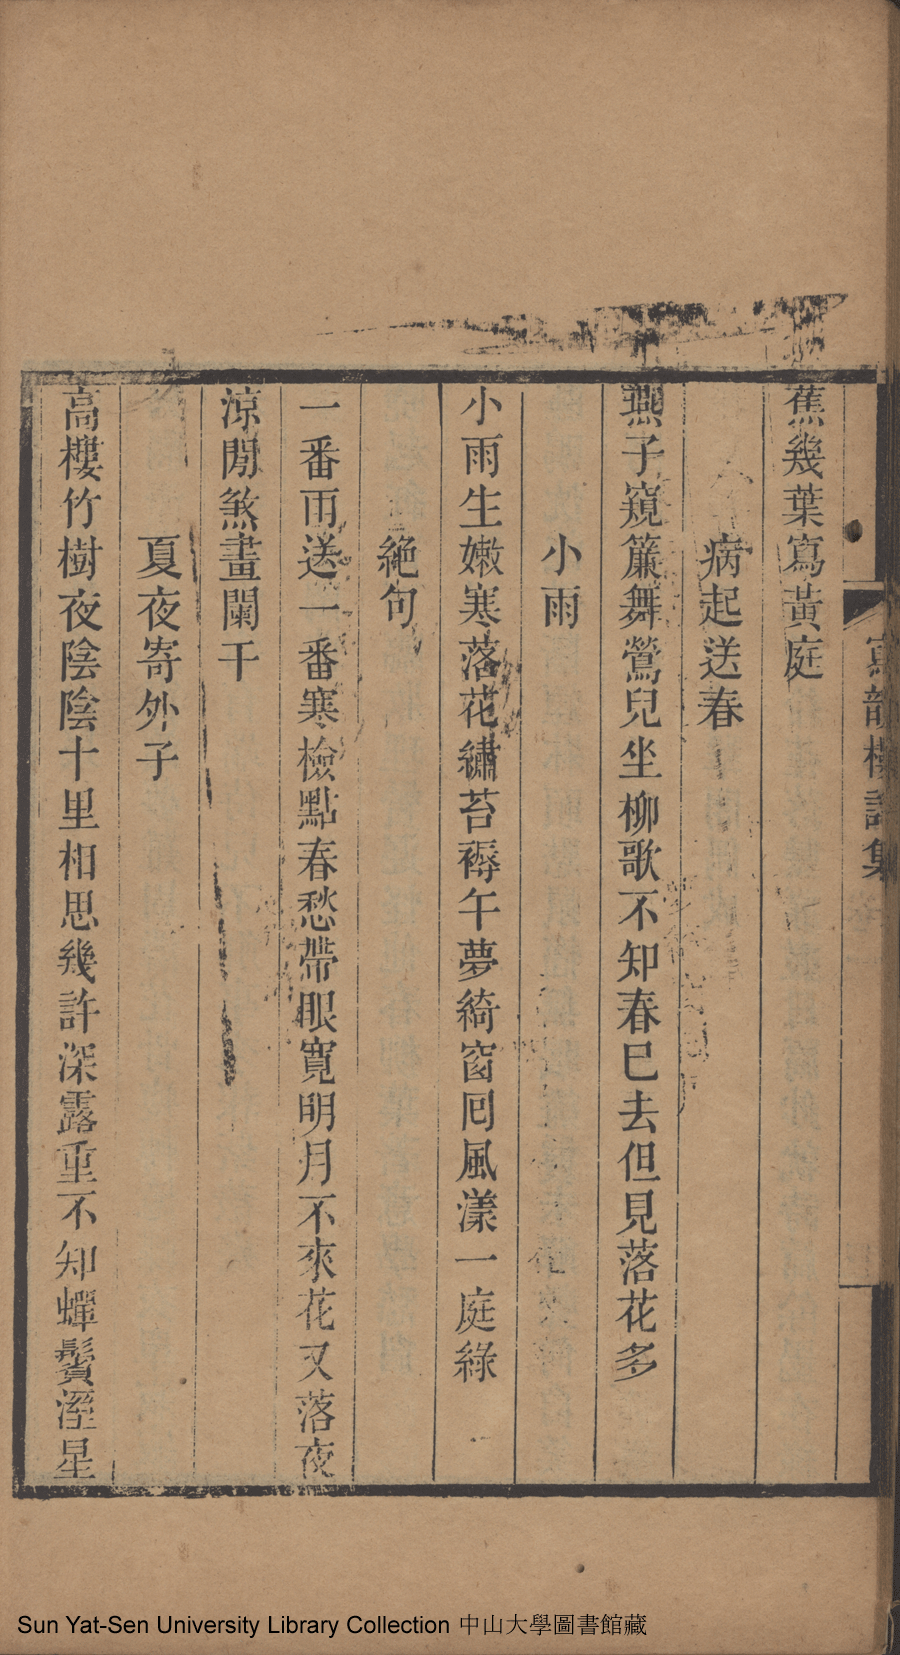 寫韻樓詩集
蕉幾葉寫黃庭
病起送春
燕子窺簾舞鶯兒坐柳歌不知春已去但見落花多
小雨
小雨生嫩寒落花繡苔褥午夢綺窗囘風漾一庭綠
絶句
一番雨送一番寒檢點春愁帶眼寬明月不來花又落夜
涼閒煞畫闌干
夏夜寄外子
高樓竹樹夜陰陰十里相思幾許深露重不知蟬鬢溼星
Sun Yat-Sen University Library Collection 中山大學圖書館藏